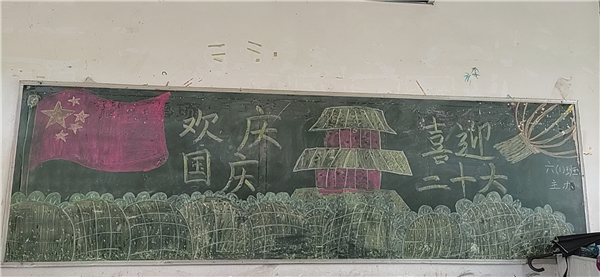 欢庆
国庆
喜迎
二十大
六(1)班
主办